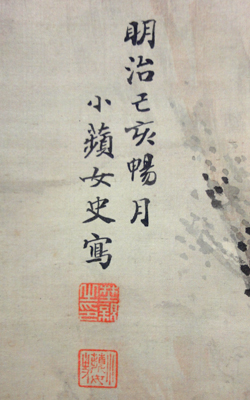 明治己亥暢月
小蘋女史寫